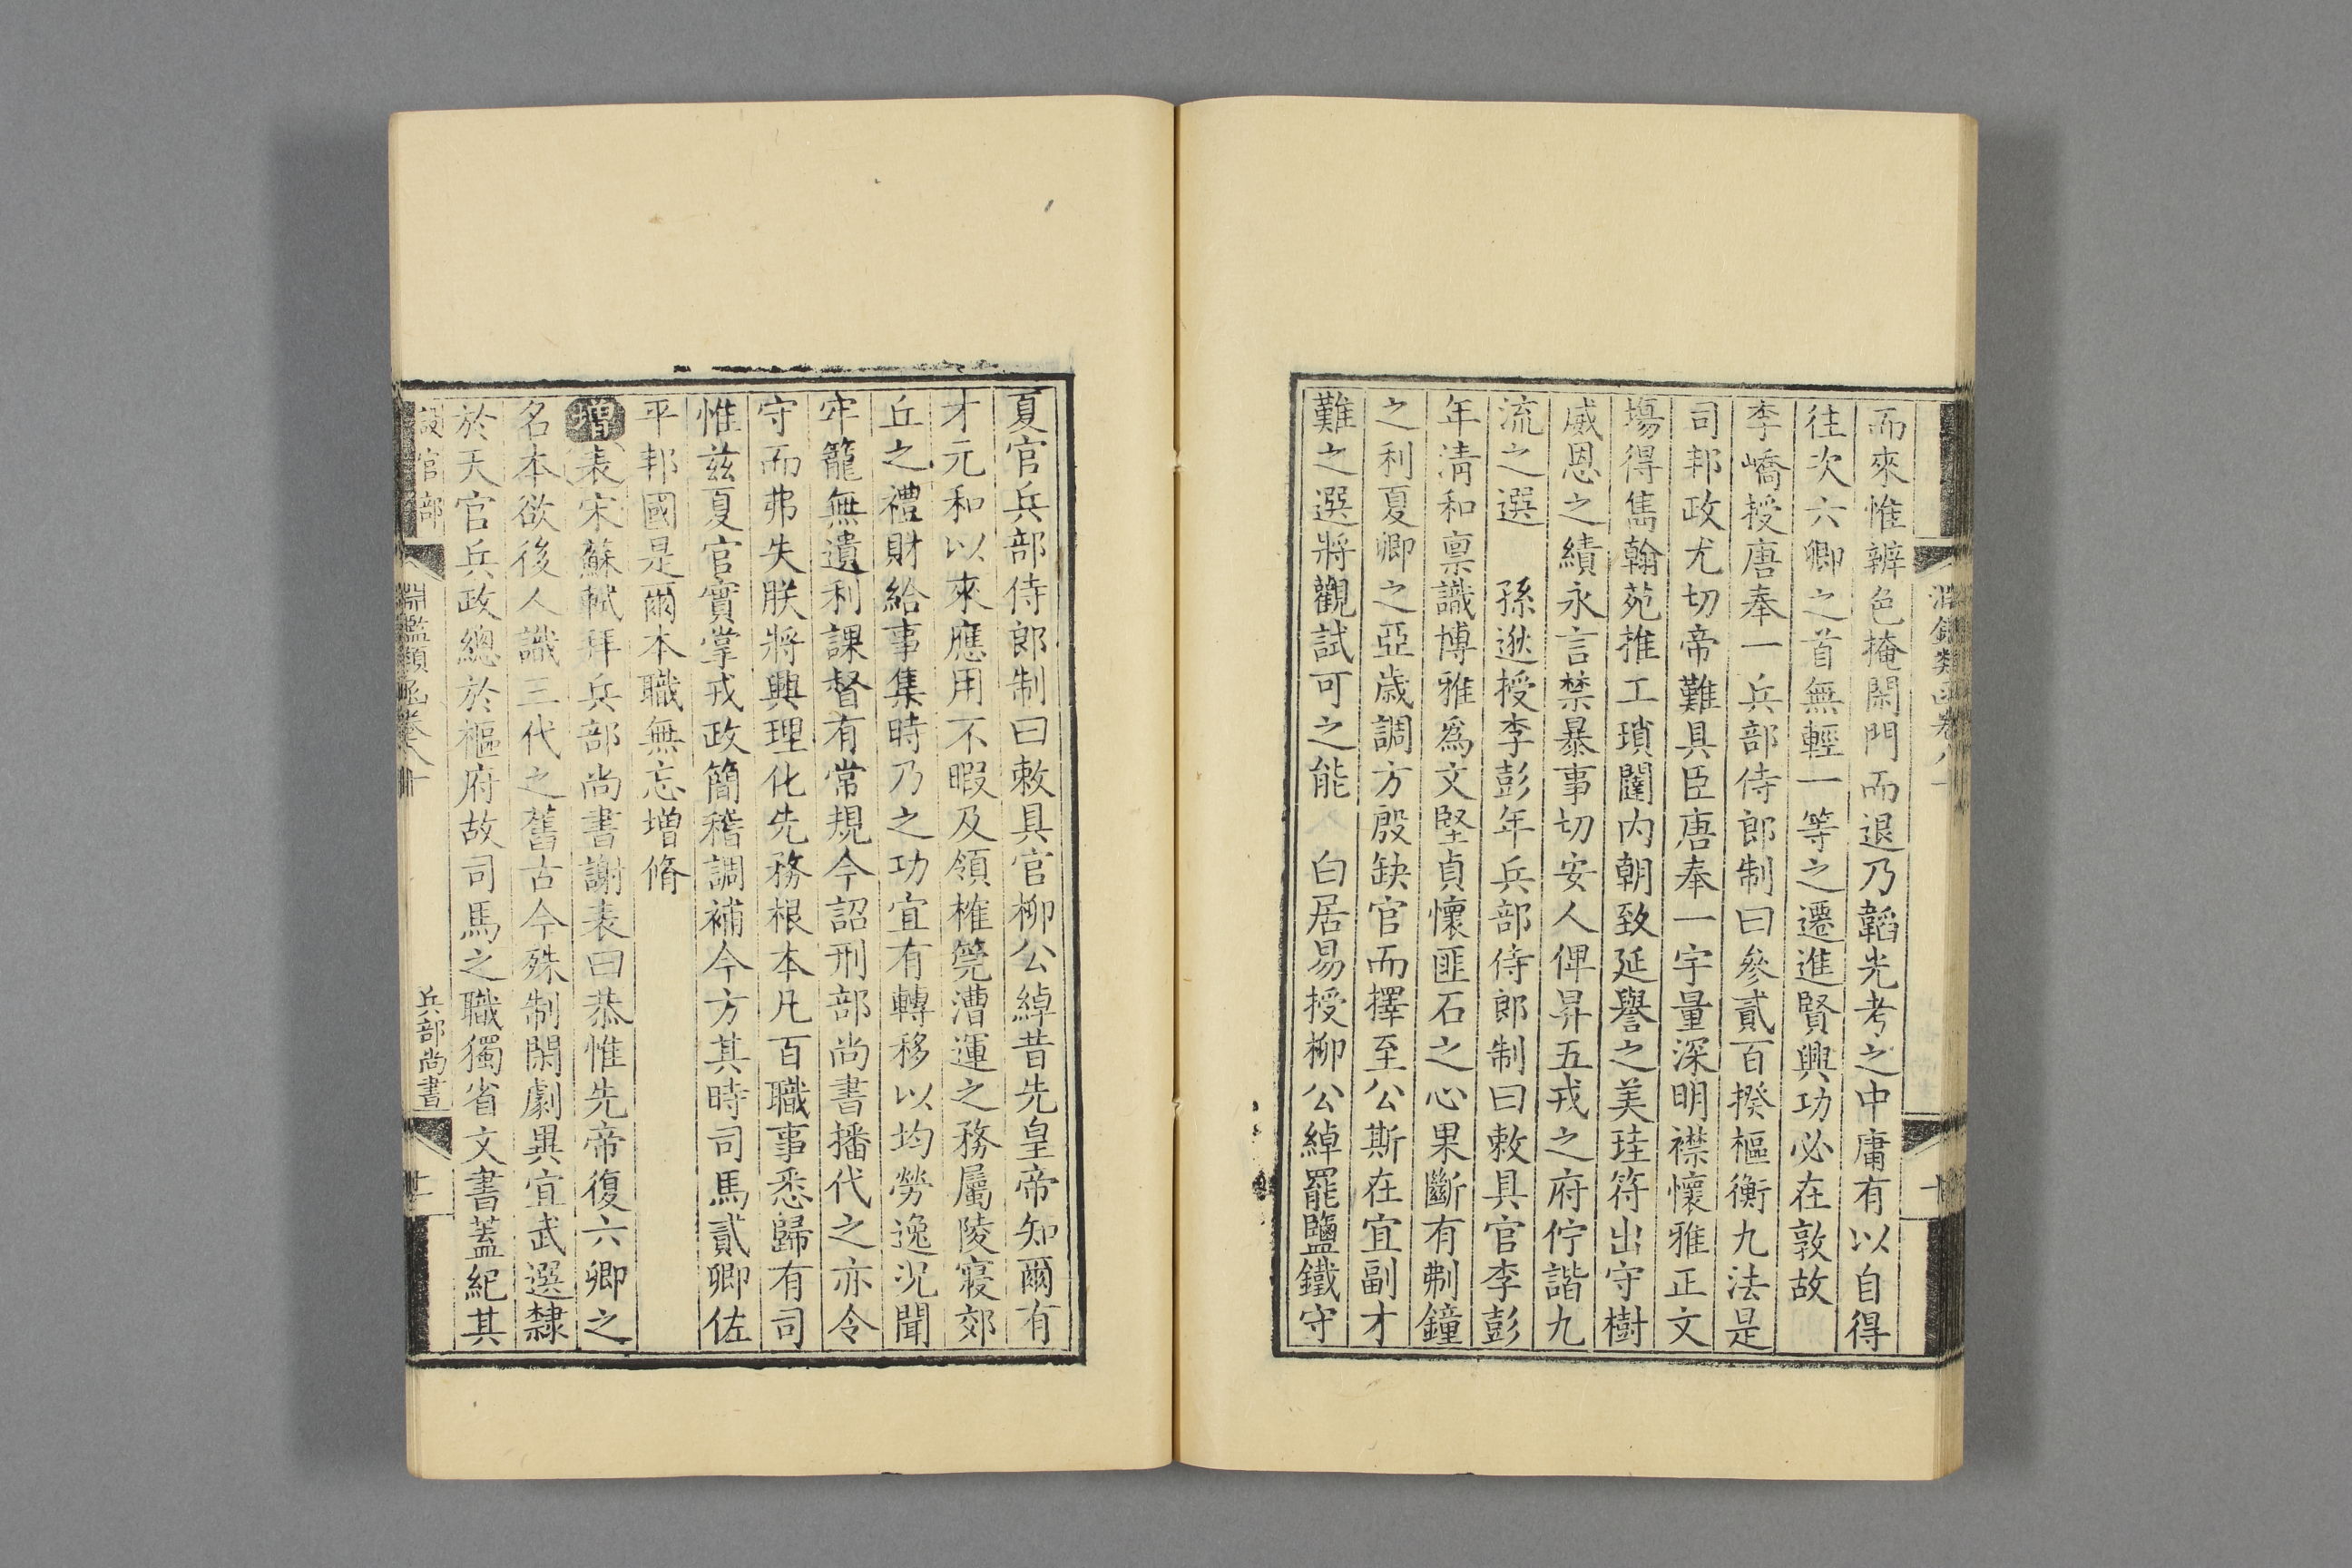 而來惟辨色掩閑門而退乃韜光考之中庸有以自得
往次六卿之首無輕一等之遷進賢興功必在敦故
李嶠授唐奉一兵部侍郎制曰參貳百揆樞衡九法是
司邦政尤切帝難具臣唐奉一宇量深明襟懷雅正文
塲得雋翰苑推工瑣闥内朝致延譽之美珪符出守樹
威恩之績永言禁暴事切安人俾昇五戎之府佇諧九
流之選　孫逖授李彭年兵部侍郎制曰敕具官李彭
年清和禀識博雅爲文堅貞懷匪石之心果斷有剸鐘
之利夏卿之亞歲調方殷缺官而擇至公斯在宜副才
難之選將觀試可之能　白居易授柳公綽罷鹽鐵守
夏官兵部侍郎制曰敕具官柳公綽昔先皇帝知爾有
才元和以來應用不暇及領榷筦漕運之務屬陵寢郊
丘之禮財給事集時乃之功宜有轉移以均勞逸況聞
牢籠無遺利課督有常規今詔刑部尚書播代之亦令
守而弗失朕將興理化先務根本凡百職事悉歸有司
惟兹夏官實掌戎政簡稽調補今方其時司馬貳卿佐
平邦國是爾本職無忘增脩
增表宋蘇軾拜兵部尚書謝表曰恭惟先帝復六卿之
名本欲後人識三代之舊古今殊制閑劇異宜武選隸
於天官兵政總於樞府故司馬之職獨省文書蓋紀其
設官部
淵鑑類函卷八十
兵部尚書
十一